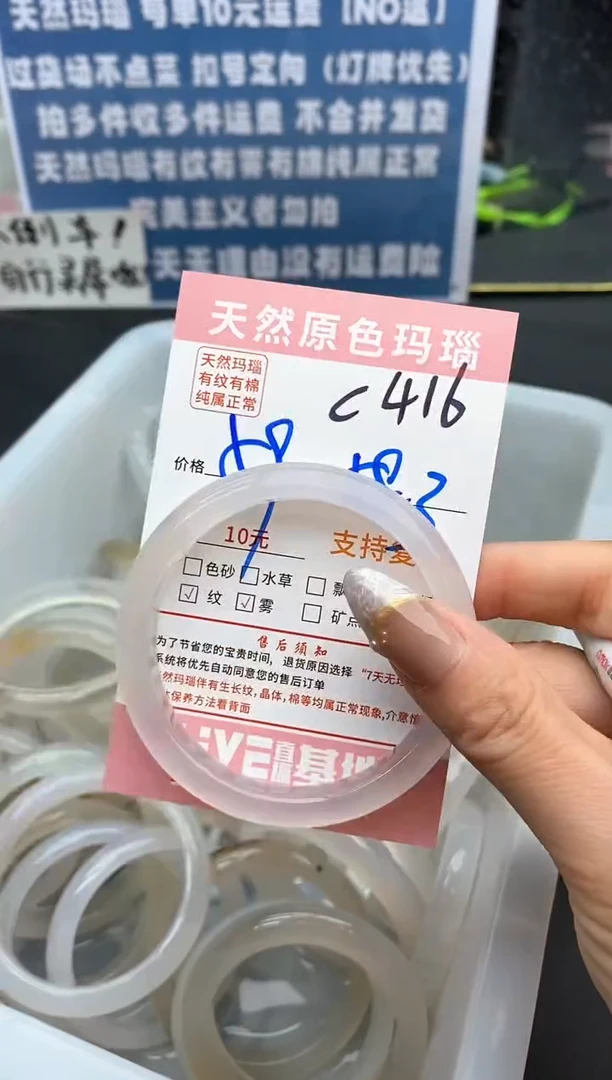 天然玛瑙 号单10元运费 【NO退】
过货场不点菜 扣号定向（灯牌优先）
拍多件收多件运费 不合并发货
天然玛瑙有纹有雾有棉纯属正常
完美主义者勿拍
天无理由没有运费险
倒车！
天然原色玛瑙
天然玛瑙
有纹有棉
纯属正常
C416
价格
10元 支持
色砂 水草 飘
☑ 纹 ☑ 雾 矿点
售后须知
为了节省您的宝贵时间，退货原因选择 “7天无
系统将优先自动同意您的售后订单
然玛瑙伴有生长纹，晶体，棉等均属正常现象，介意
保养方法看背面
LIVE直播基地